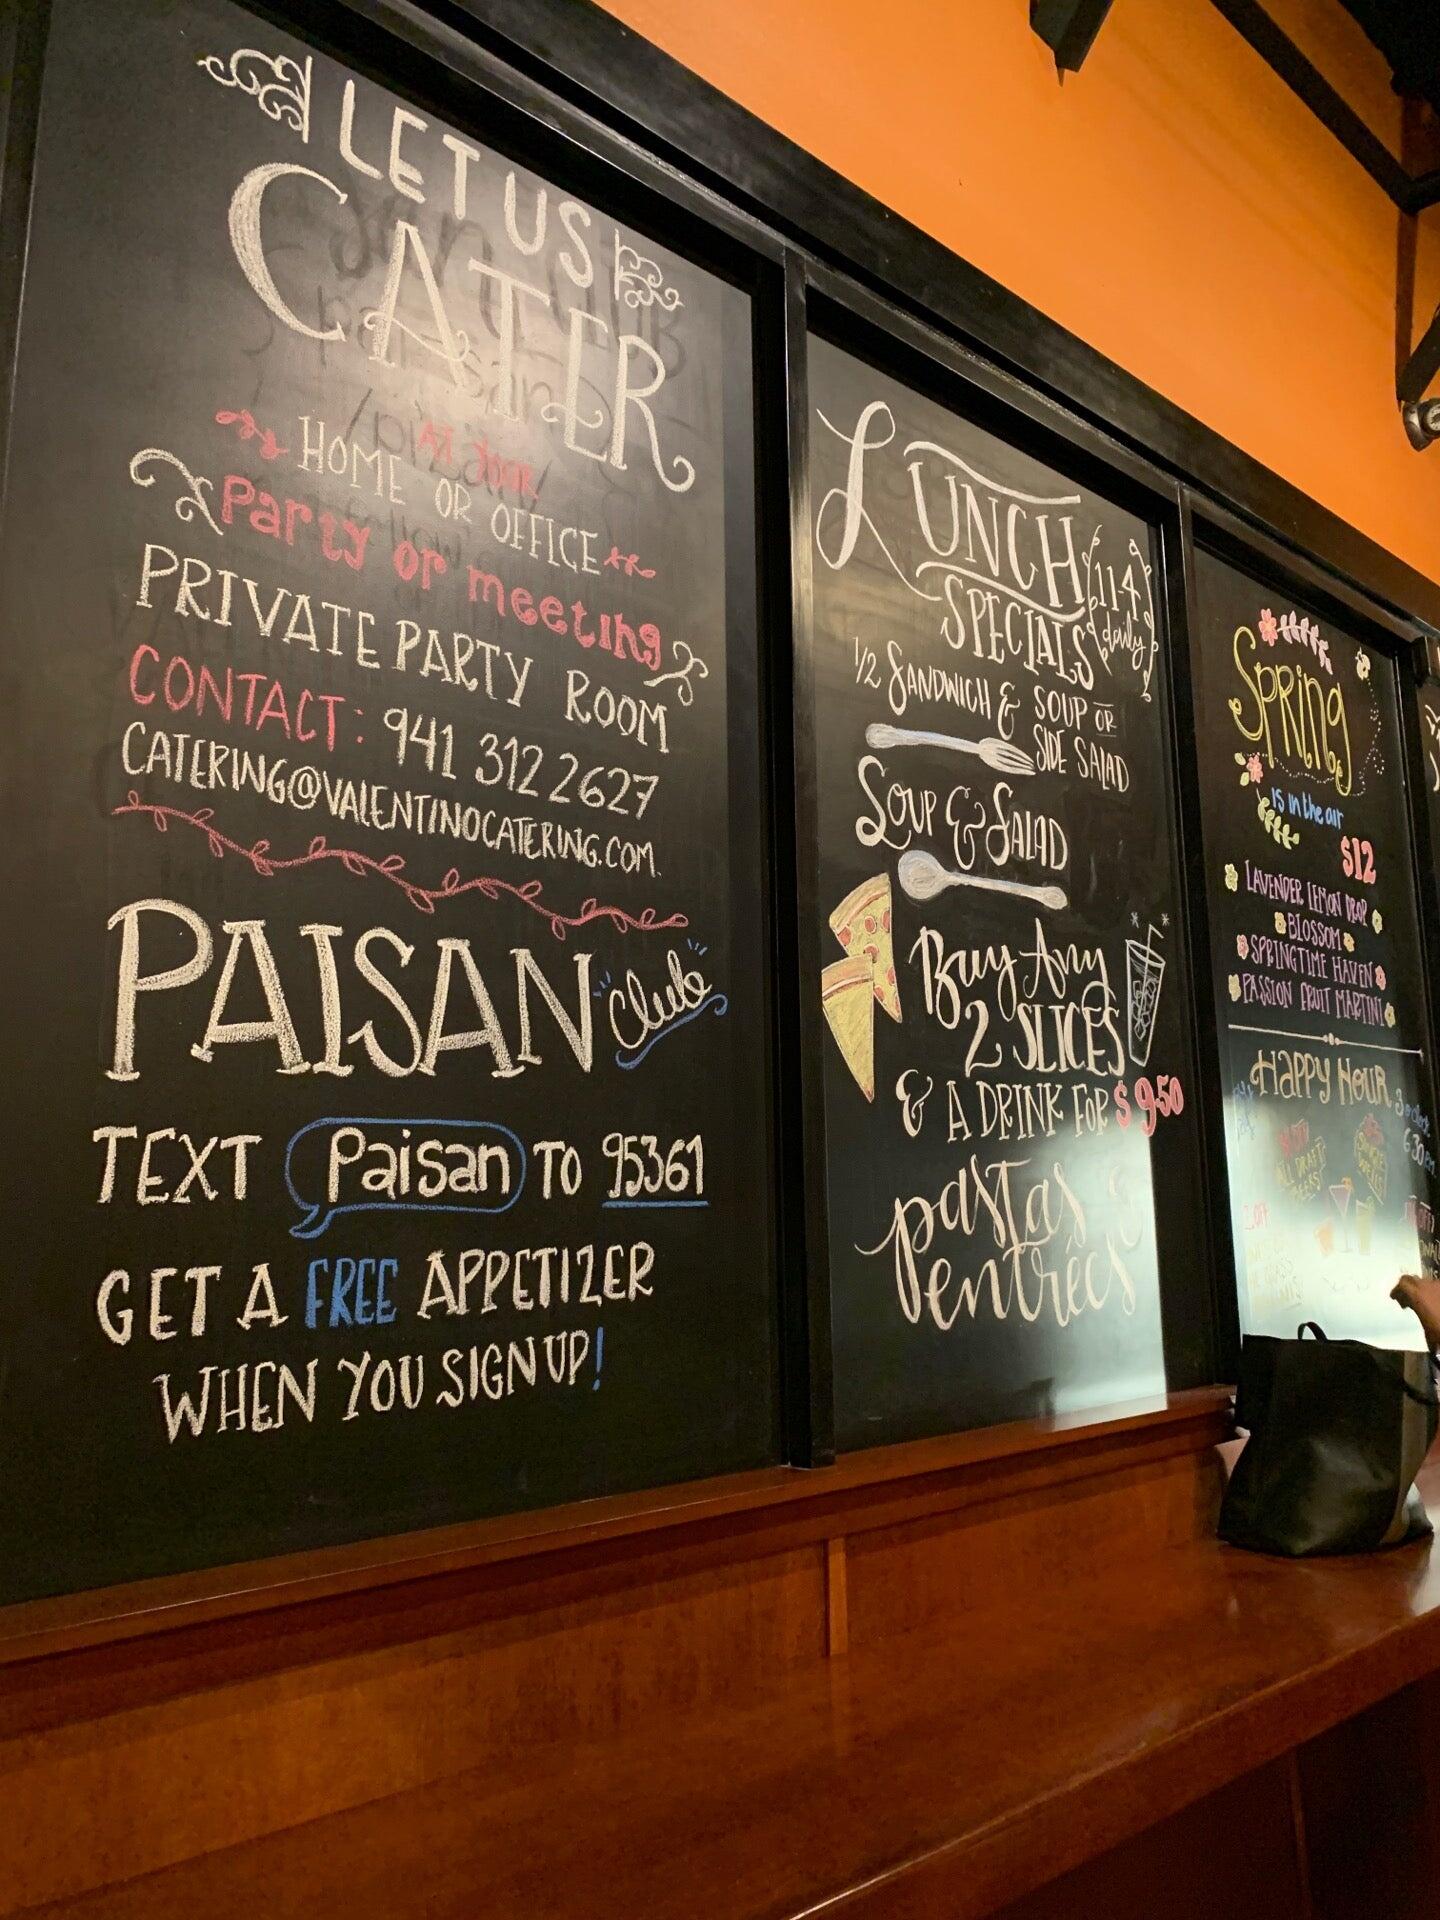 LET US
CATER
AT YOUR
HOME OR OFFICE
Party or meeting
PRIVATE PARTY ROOM
CONTACT: 941 312 2627
CATERING@VALENTINOCATERING.COM.
PAISAN Club
TEXT Paisan TO 95361
GET A FREE APPETIZER
WHEN YOU SIGN UP!
LUNCH
SPECIALS
11-4
daily
1/2 SANDWICH & SOUP OR
SIDE SALAD
SOUP & SALAD
Buy Any
2 SLICES
& A DRINK FOR $9.50
pastas &
entrées
Spring
is in the air
$12
LAVENDER LEMON DROP
BLOSSOM
SPRINGTIME HAVEN
PASSION FRUIT MARTINI
HAPPY HOUR
ALL DRAFT
BEERS